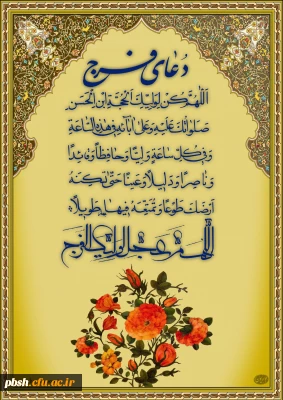 دُعای فرج
اَللّهُمَّ کُنْ لِوَلِیِّکَ الْحُجَّةِ ابْنِ الْحَسَن
صَلَواتُکَ عَلَیْهِ وَعَلی ابائِهِ فی هذِهِ السّاعَةِ
وَفی کُلِّ ساعَةٍ وَلِیّاً وَحافِظاً وَقائِدا
وَناصِراً وَدَلیلاً وَعَیْناً حَتّی تُسْکِنَهُ
اَرْضَکَ طَوْعاً وَتُمَتِّعَهُ فیها طَویلاً
اللّهم عجل لولیک الفرج
pbsh.cfu.ac.ir